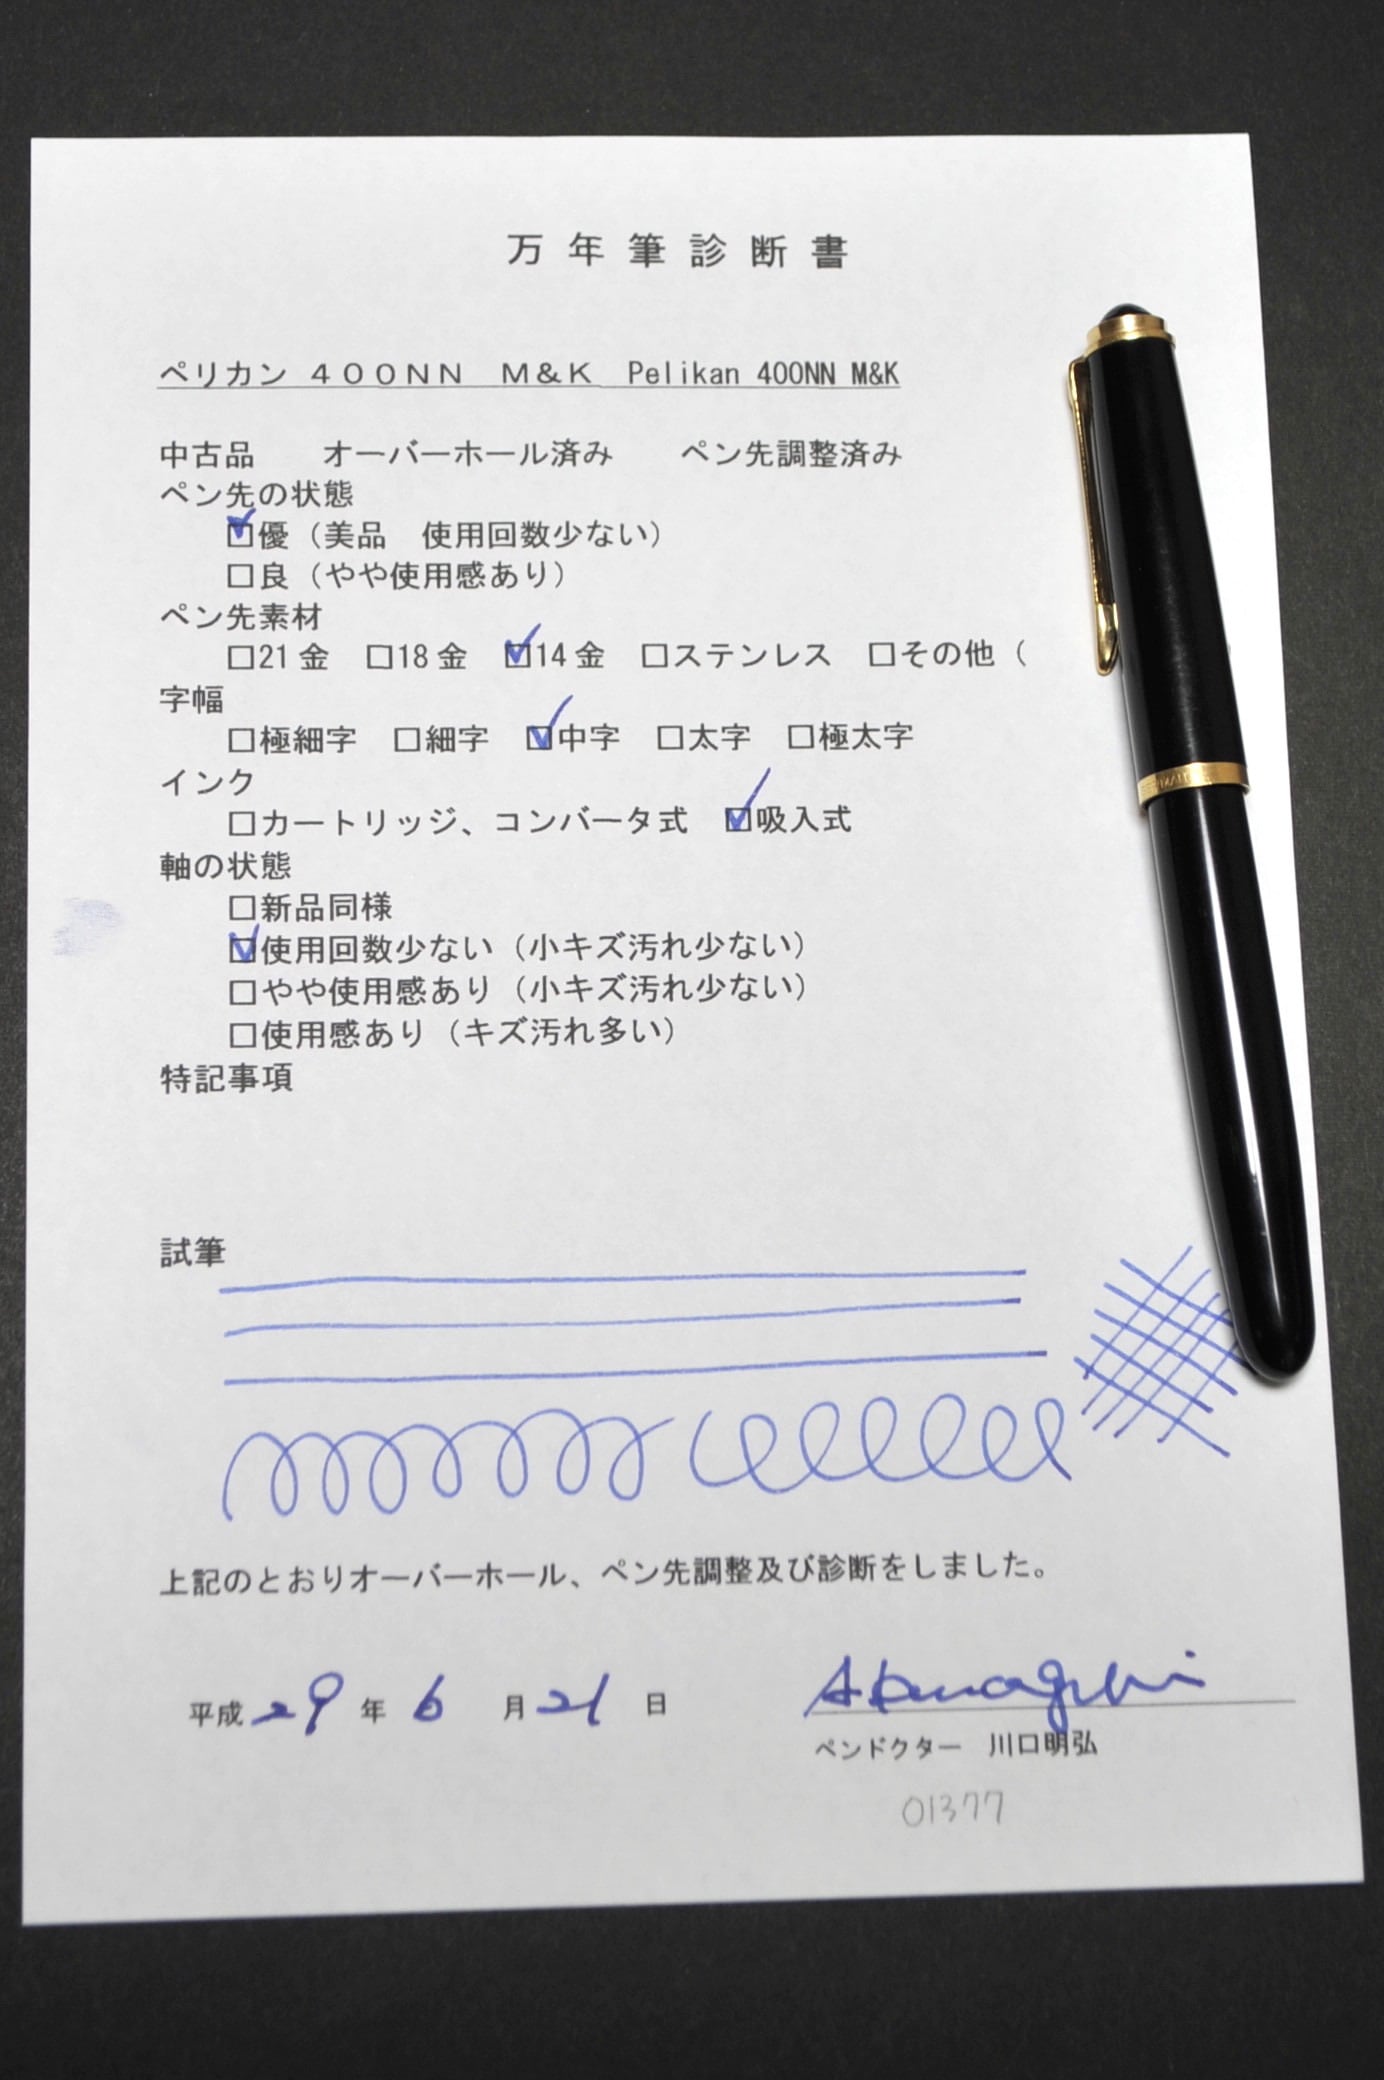 万年筆診断書
ペリカン ４００ＮＮ　Ｍ＆Ｋ　Pelikan 400NN M&K
中古品　　オーバーホール済み　　ペン先調整済み
ペン先の状態
☑優（美品　使用回数少ない）
□良（やや使用感あり）
ペン先素材
□21金　□18金　☑14金　□ステンレス　□その他（
字幅
□極細字　□細字　☑中字　□太字　□極太字
インク
□カートリッジ、コンバータ式　☑吸入式
軸の状態
□新品同様
☑使用回数少ない（小キズ汚れ少ない）
□やや使用感あり（小キズ汚れ少ない）
□使用感あり（キズ汚れ多い）
特記事項
試筆
上記のとおりオーバーホール、ペン先調整及び診断をしました。
平成 29 年 6 月 21 日
ペンドクター　川口明弘
01377